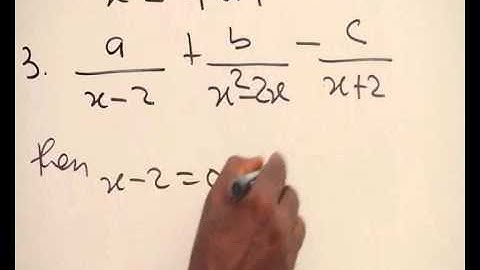 3. a/(x-2) + b/(x²-2x) - c/(x+2)
then x-2=0